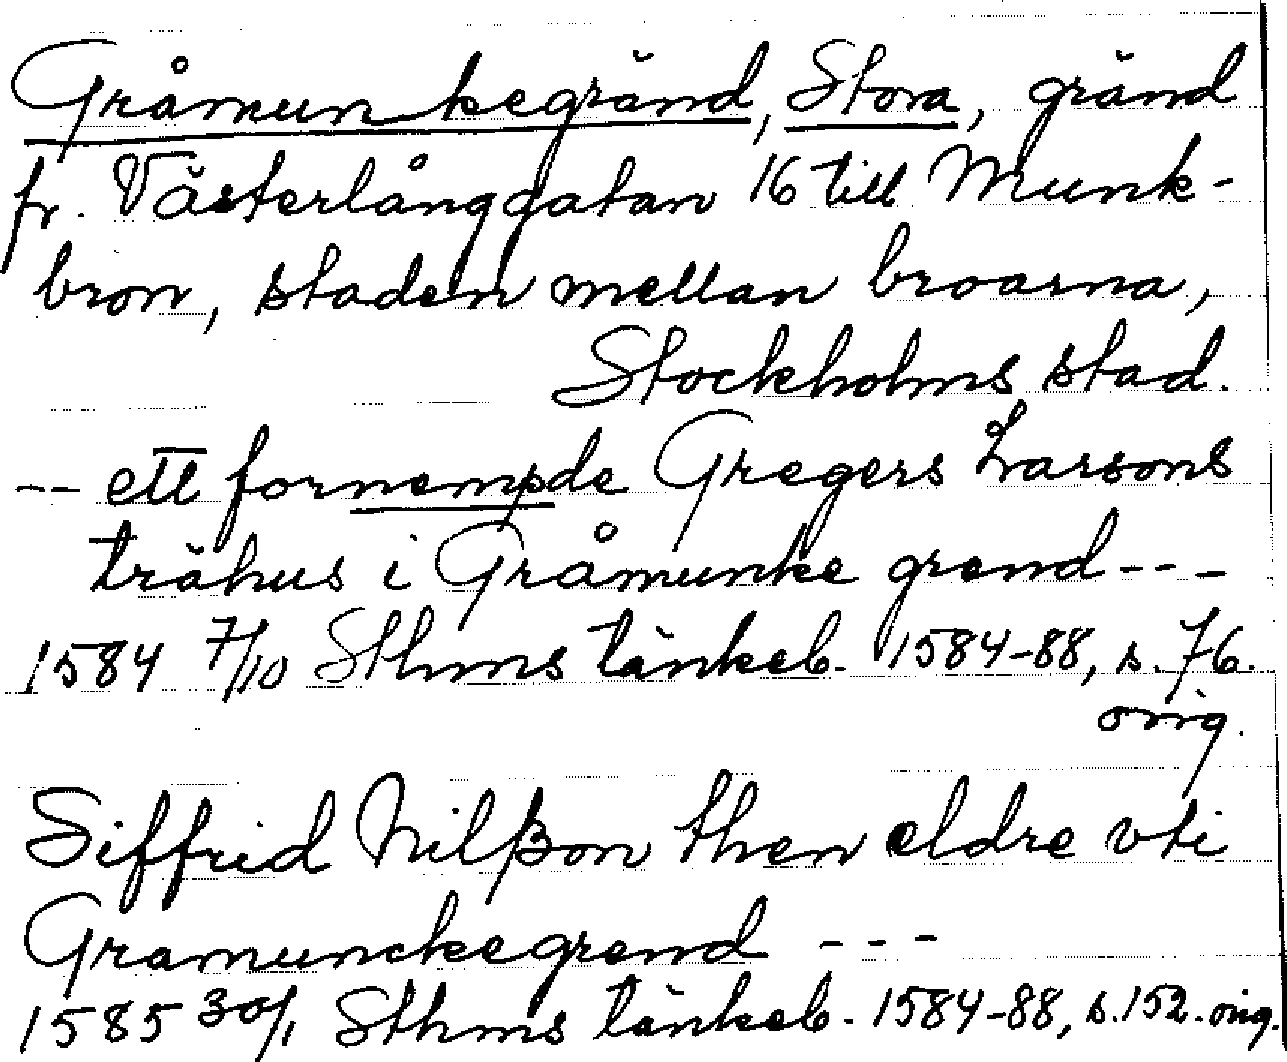 Gråmunkegränd, Stora, gränd
fr. Västerlånggatan 16 till Munk-
bron, staden mellan broarna,
Stockholms stad.
-- ett fornempde Gregers Larsons
trähus i Gråmunke grend ---
1584 7/10 Sthms tänkeb. 1584-88, s. 76.
orig.
Siffrid Nilßon then eldre vti
Gramunckegrend ---
1585 30/1 Sthms tänkeb. 1584-88, s. 152. orig.